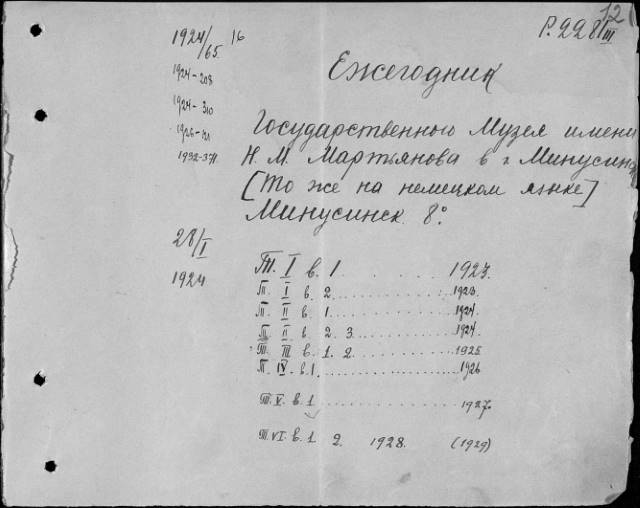 12
P.228/III
1924/65 16
Ежегодник
1924-208
1924-310
1926-121
1932-371
Государственного Музея имени
Н. М. Мартьянова в г. Минусин
[То же на немецком языке]
Минусинск 8°.
28/I
1924
Т. I в. 1. ........ 1923.
Т. I в. 2 ........ 1923.
Т. II в. 1. ........ 1924.
Т. II в. 2. 3. ........ 1924.
Т. III в. 1. 2. ........ 1925
Т. IV в. 1. ........ 1926
Т. V. в. 1 ........ 1927.
Т. VI. в. 1. 2. 1928. (1929)